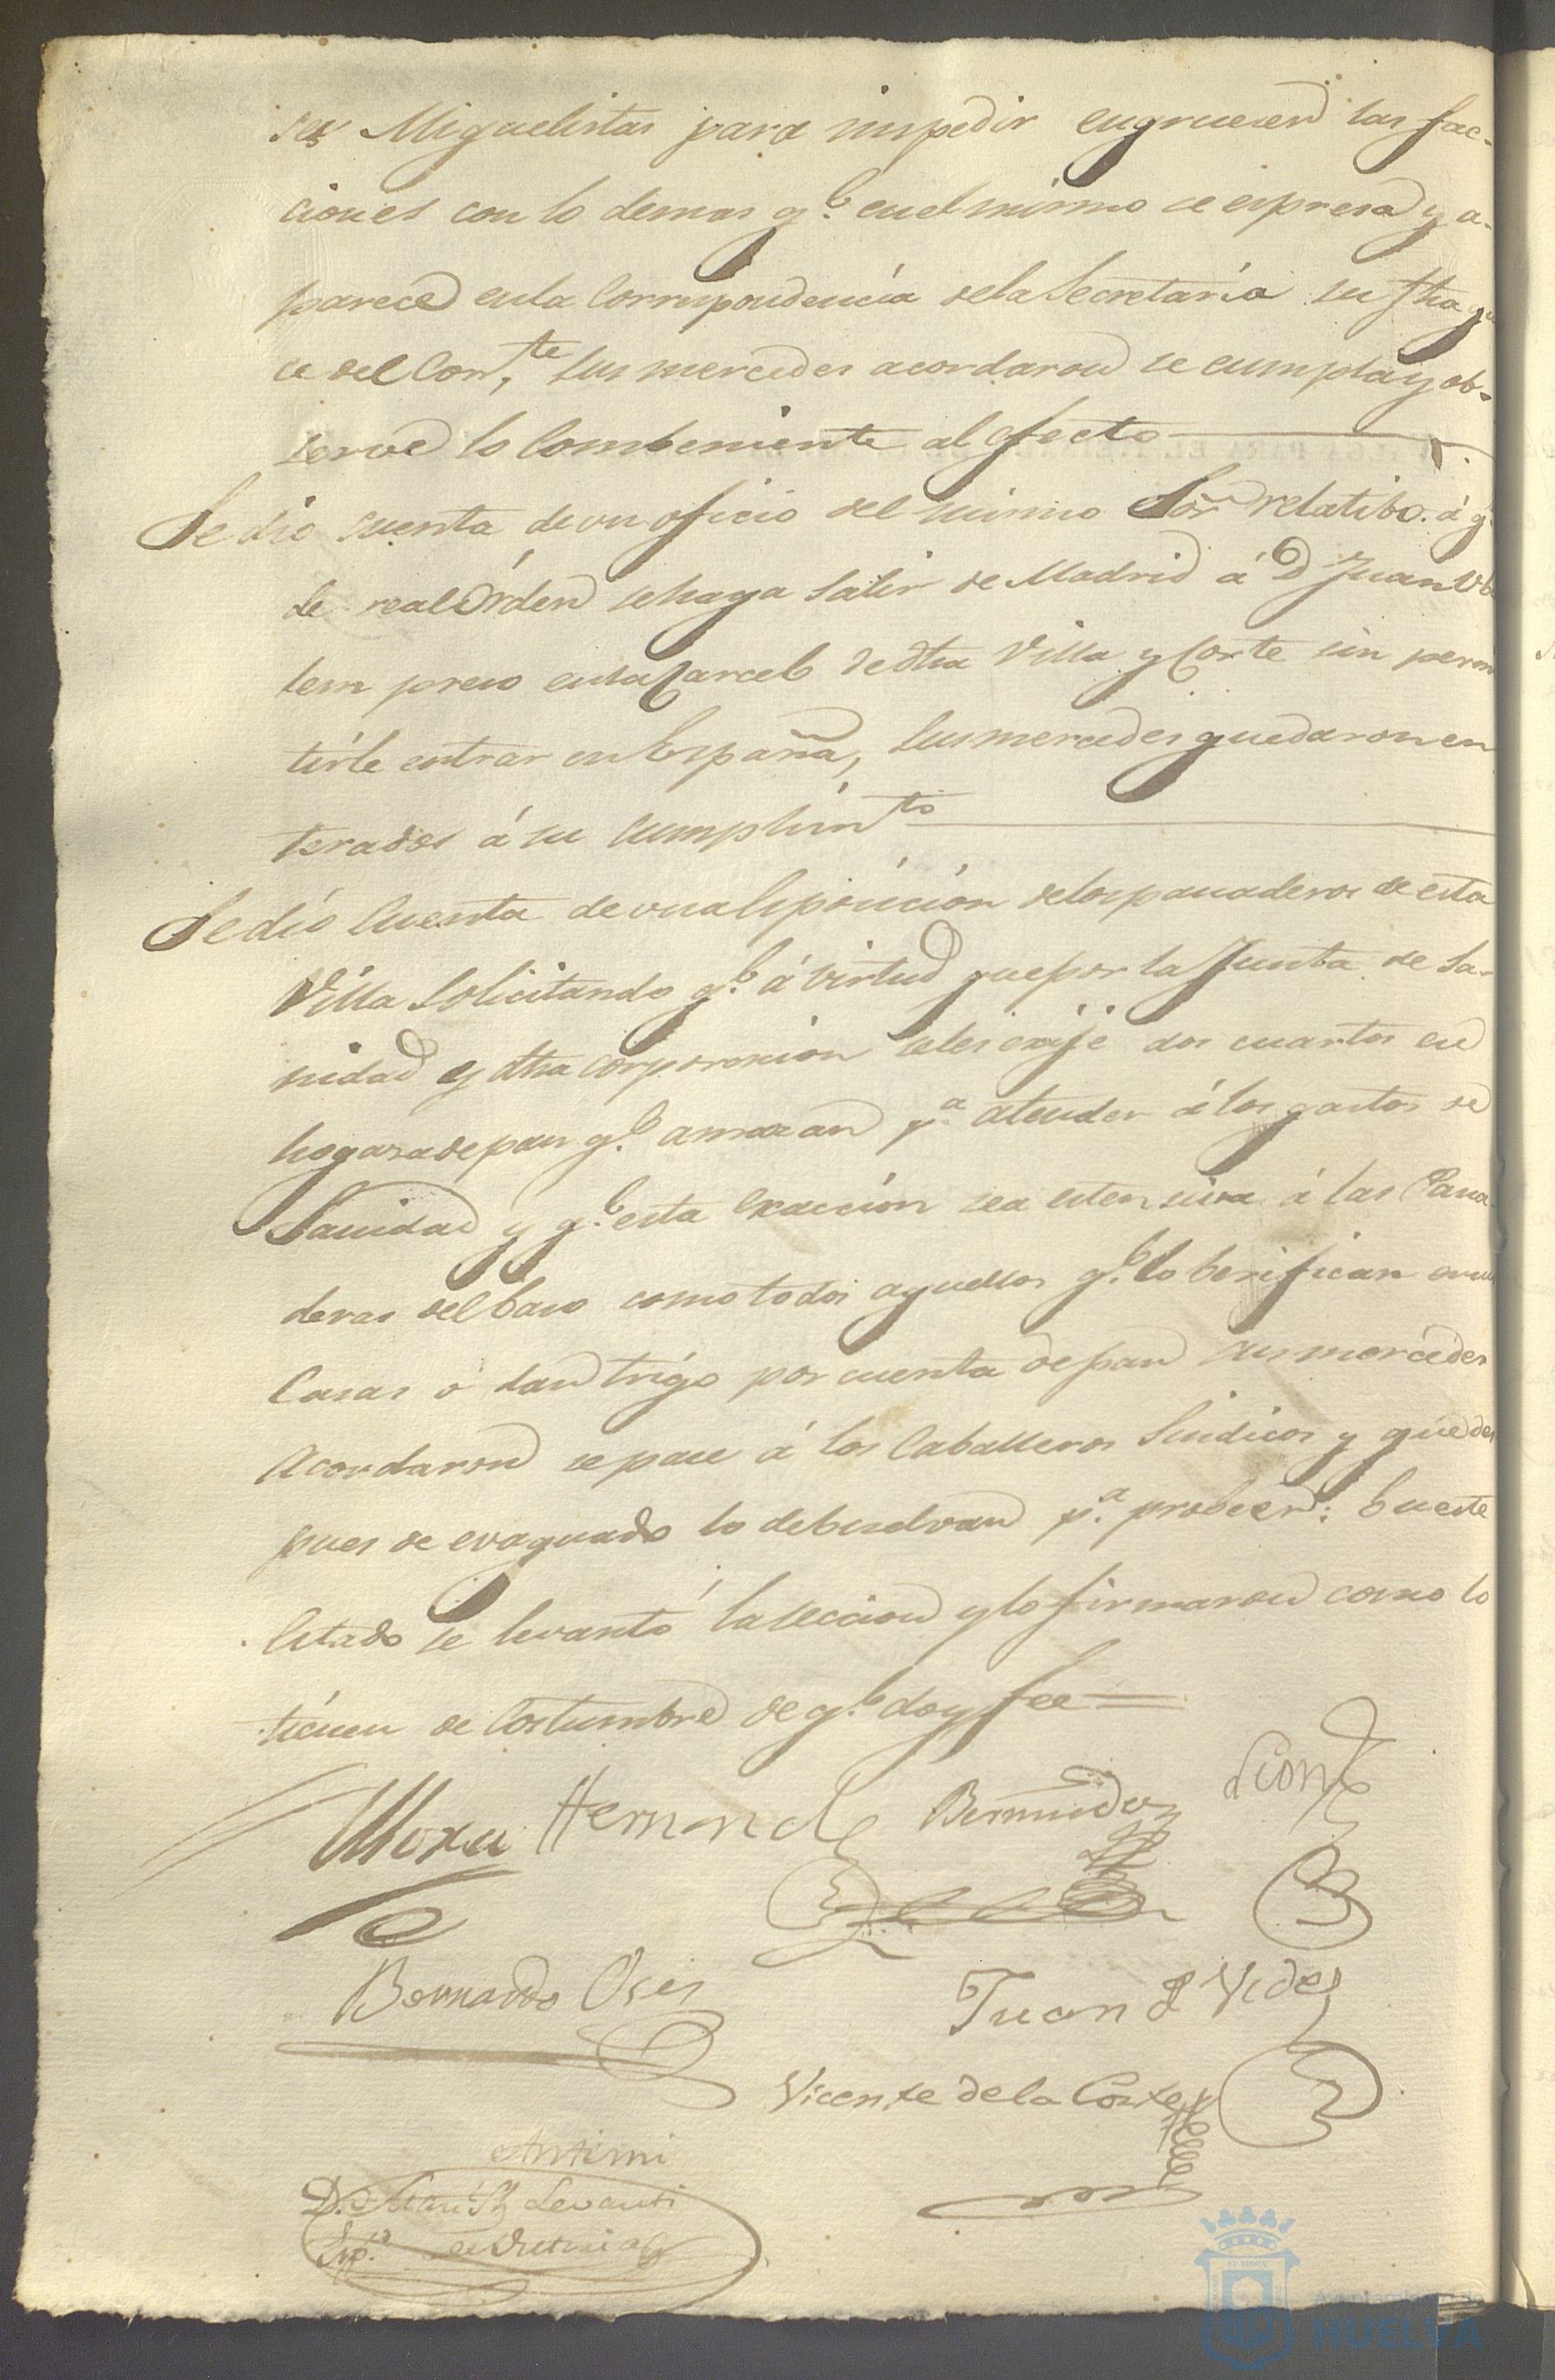 Miguelistas para impedir engruesen las fac-
ciones con lo demas q.e en el mismo se espresa y a-
parece en la Correspondencia dela Secretaría su fha
ce del Corr.te Sus mercedes acordaron se cumpla y ob-
serve lo combeniente al efecto
Se dio cuenta de un oficio del mismo Sor relatibo á q
de real Orden se haga salir de Madrid á D Juan
preso en la Carcel de dha Villa y Corte sin permi
tirle entrar en España, Sus mercedes quedaron en
terados á su cumplim.to
Se dió Cuenta de una Esposicion delos panaderos de esta
Villa Solicitando q.e á virtud que por la Junta de Sa-
nidad y dha corporacion seles exije dos cuartos en
hogaza de pan q.e amazan p.a atender á los gastos de
Sanidad y q.e esta Exaccion sea estensiva á las Pana
deras del bajo como todos aquellos q.e lo berifican en sus
Casas o dan trigo por cuenta de pan sus mercedes
Acordaron se pase á los Caballeros Sindicos y que des
pues de evaquado lo debuelvan p.a probeer: En este
Estado se levantó la seccion y lo firmaron como lo
tienen de Costumbre de q.e doy fee
Mora Hernnde Bermudez
Bernardo Oses
Juan Vides
Vicente de la Corte
Antemi
D.
Levanti
Ayuntamiento de
HUELVA